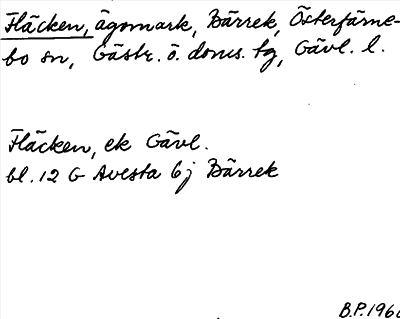 Fläcken, ägomark, Bärrek, Österfärne-
bo sn, Gästr. ö. doms. tg, Gävl. l.
Fläcken, ek Gävl.
bl. 12 G Avesta 6j Bärrek
B.P. 1966